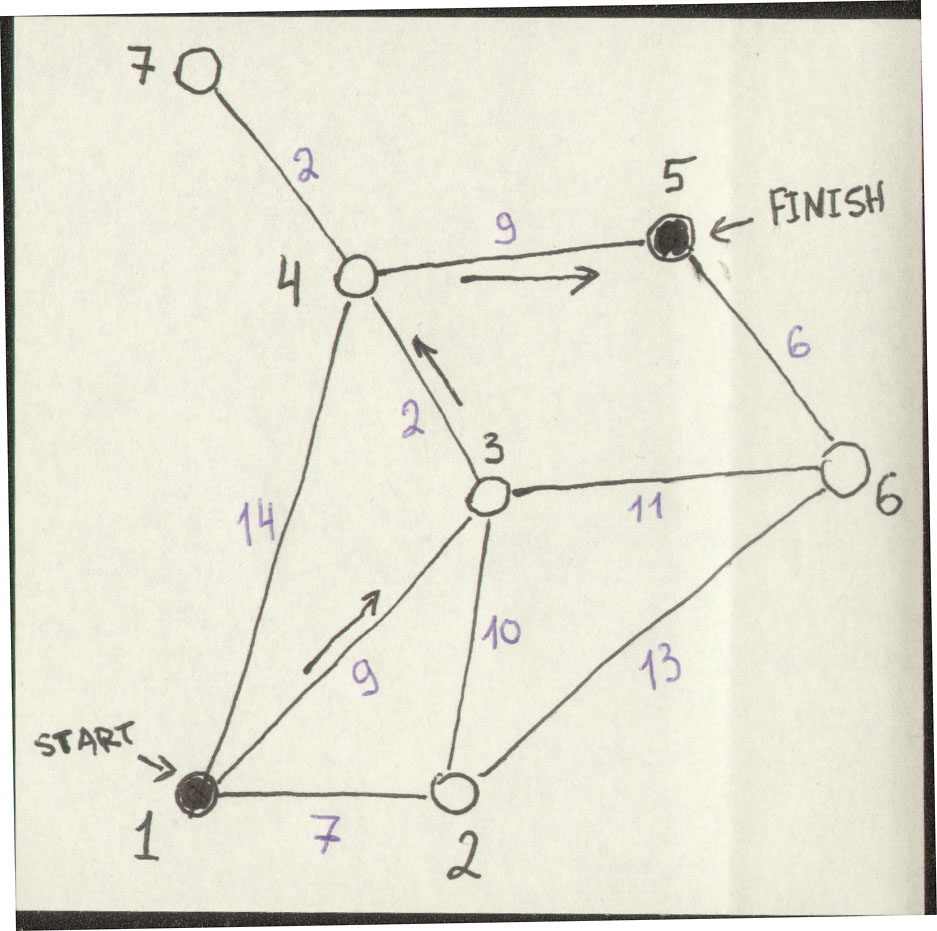 7
2
5
FINISH
9
4
6
2
3
14
11
6
10
9
13
START
1
7
2